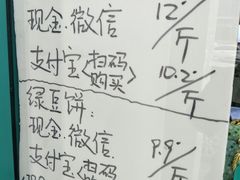 现金.微信 12元/斤
支付宝<扫码购买> 10.2元/斤
绿豆饼:
现金.微信
支付宝<扫码 9.9元/斤